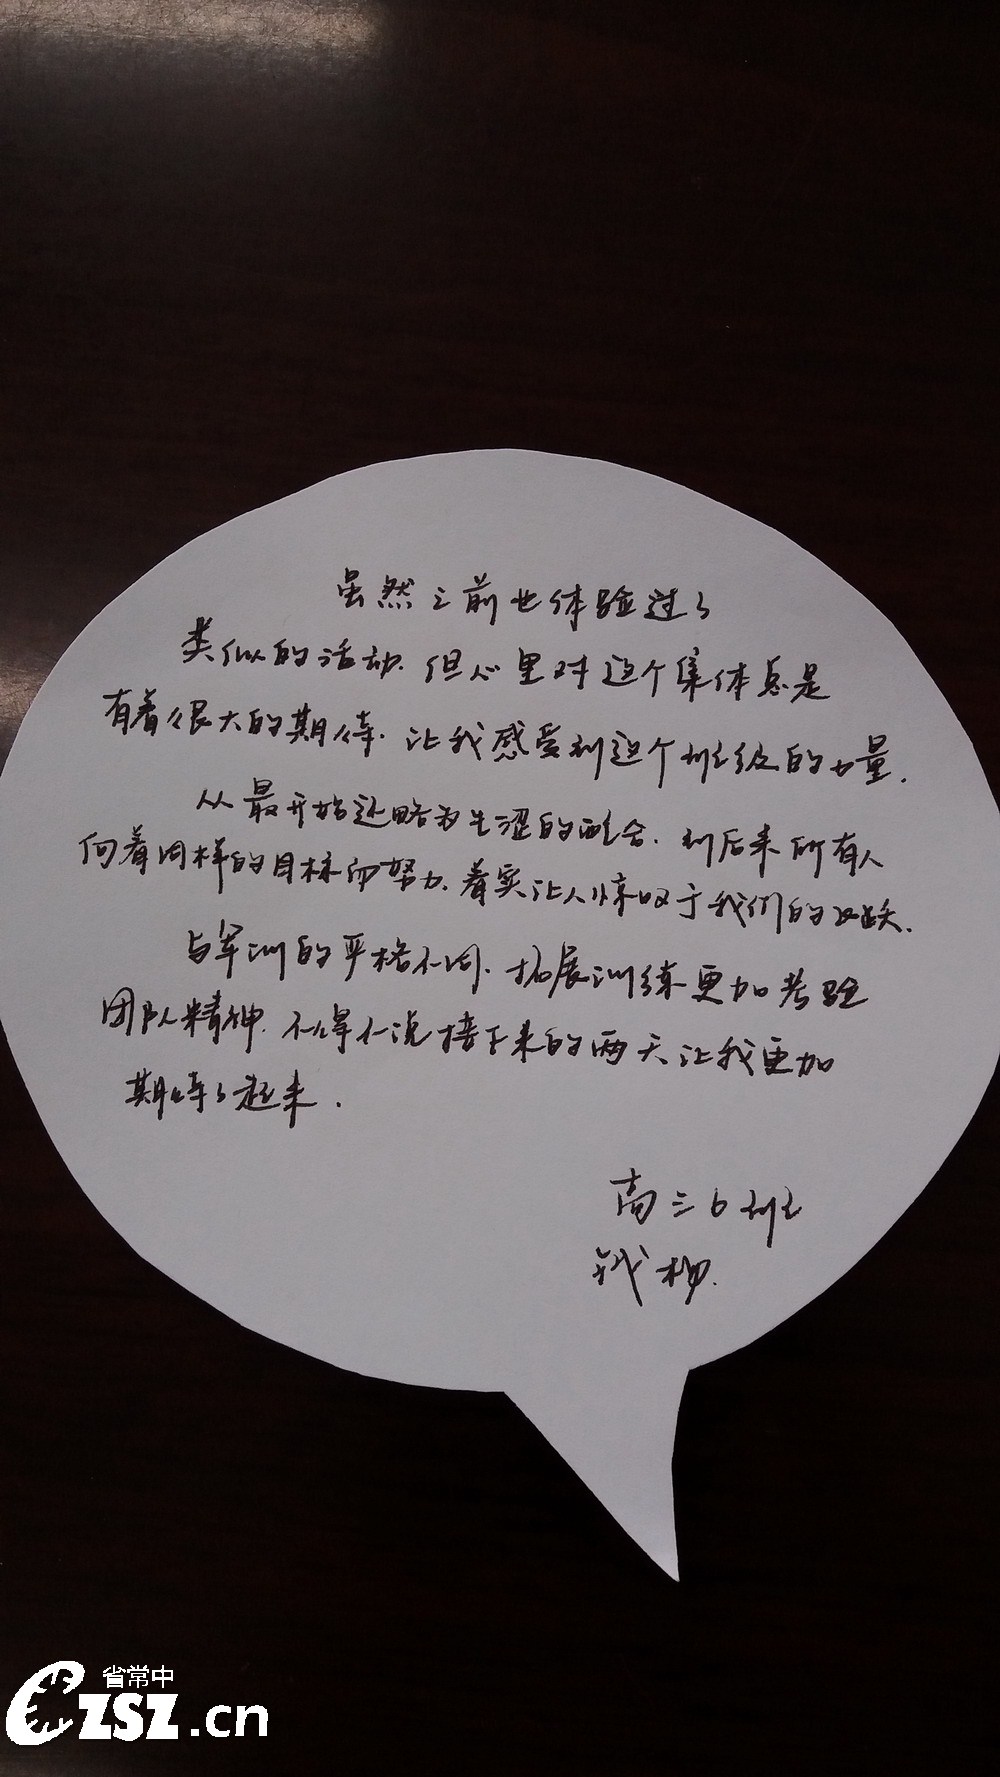 虽然之前也体验过了
类似的活动.但心里对这个集体总是
有着很大的期待.让我感受到这个班级的力量.
从最开始还略为生涩的配合.到后来所有人
向着同样的目标而努力.着实让人惊叹于我们的飞跃.
与军训的严格不同.拓展训练更加考验
团队精神.不得不说接下来的两天让我更加
期待了起来.
高三6班
钱杨.
省常中
CZSZ.cn